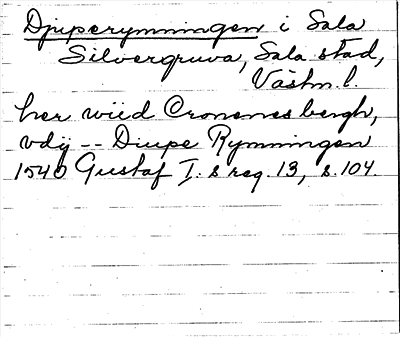 Djuperymningen i Sala
Silvergruva, Sala stad,
Västm. l.
her wiid Cronones bergh,
vdij -- Diupe Rymningen
1540 Gustaf I. s reg. 13, s. 104